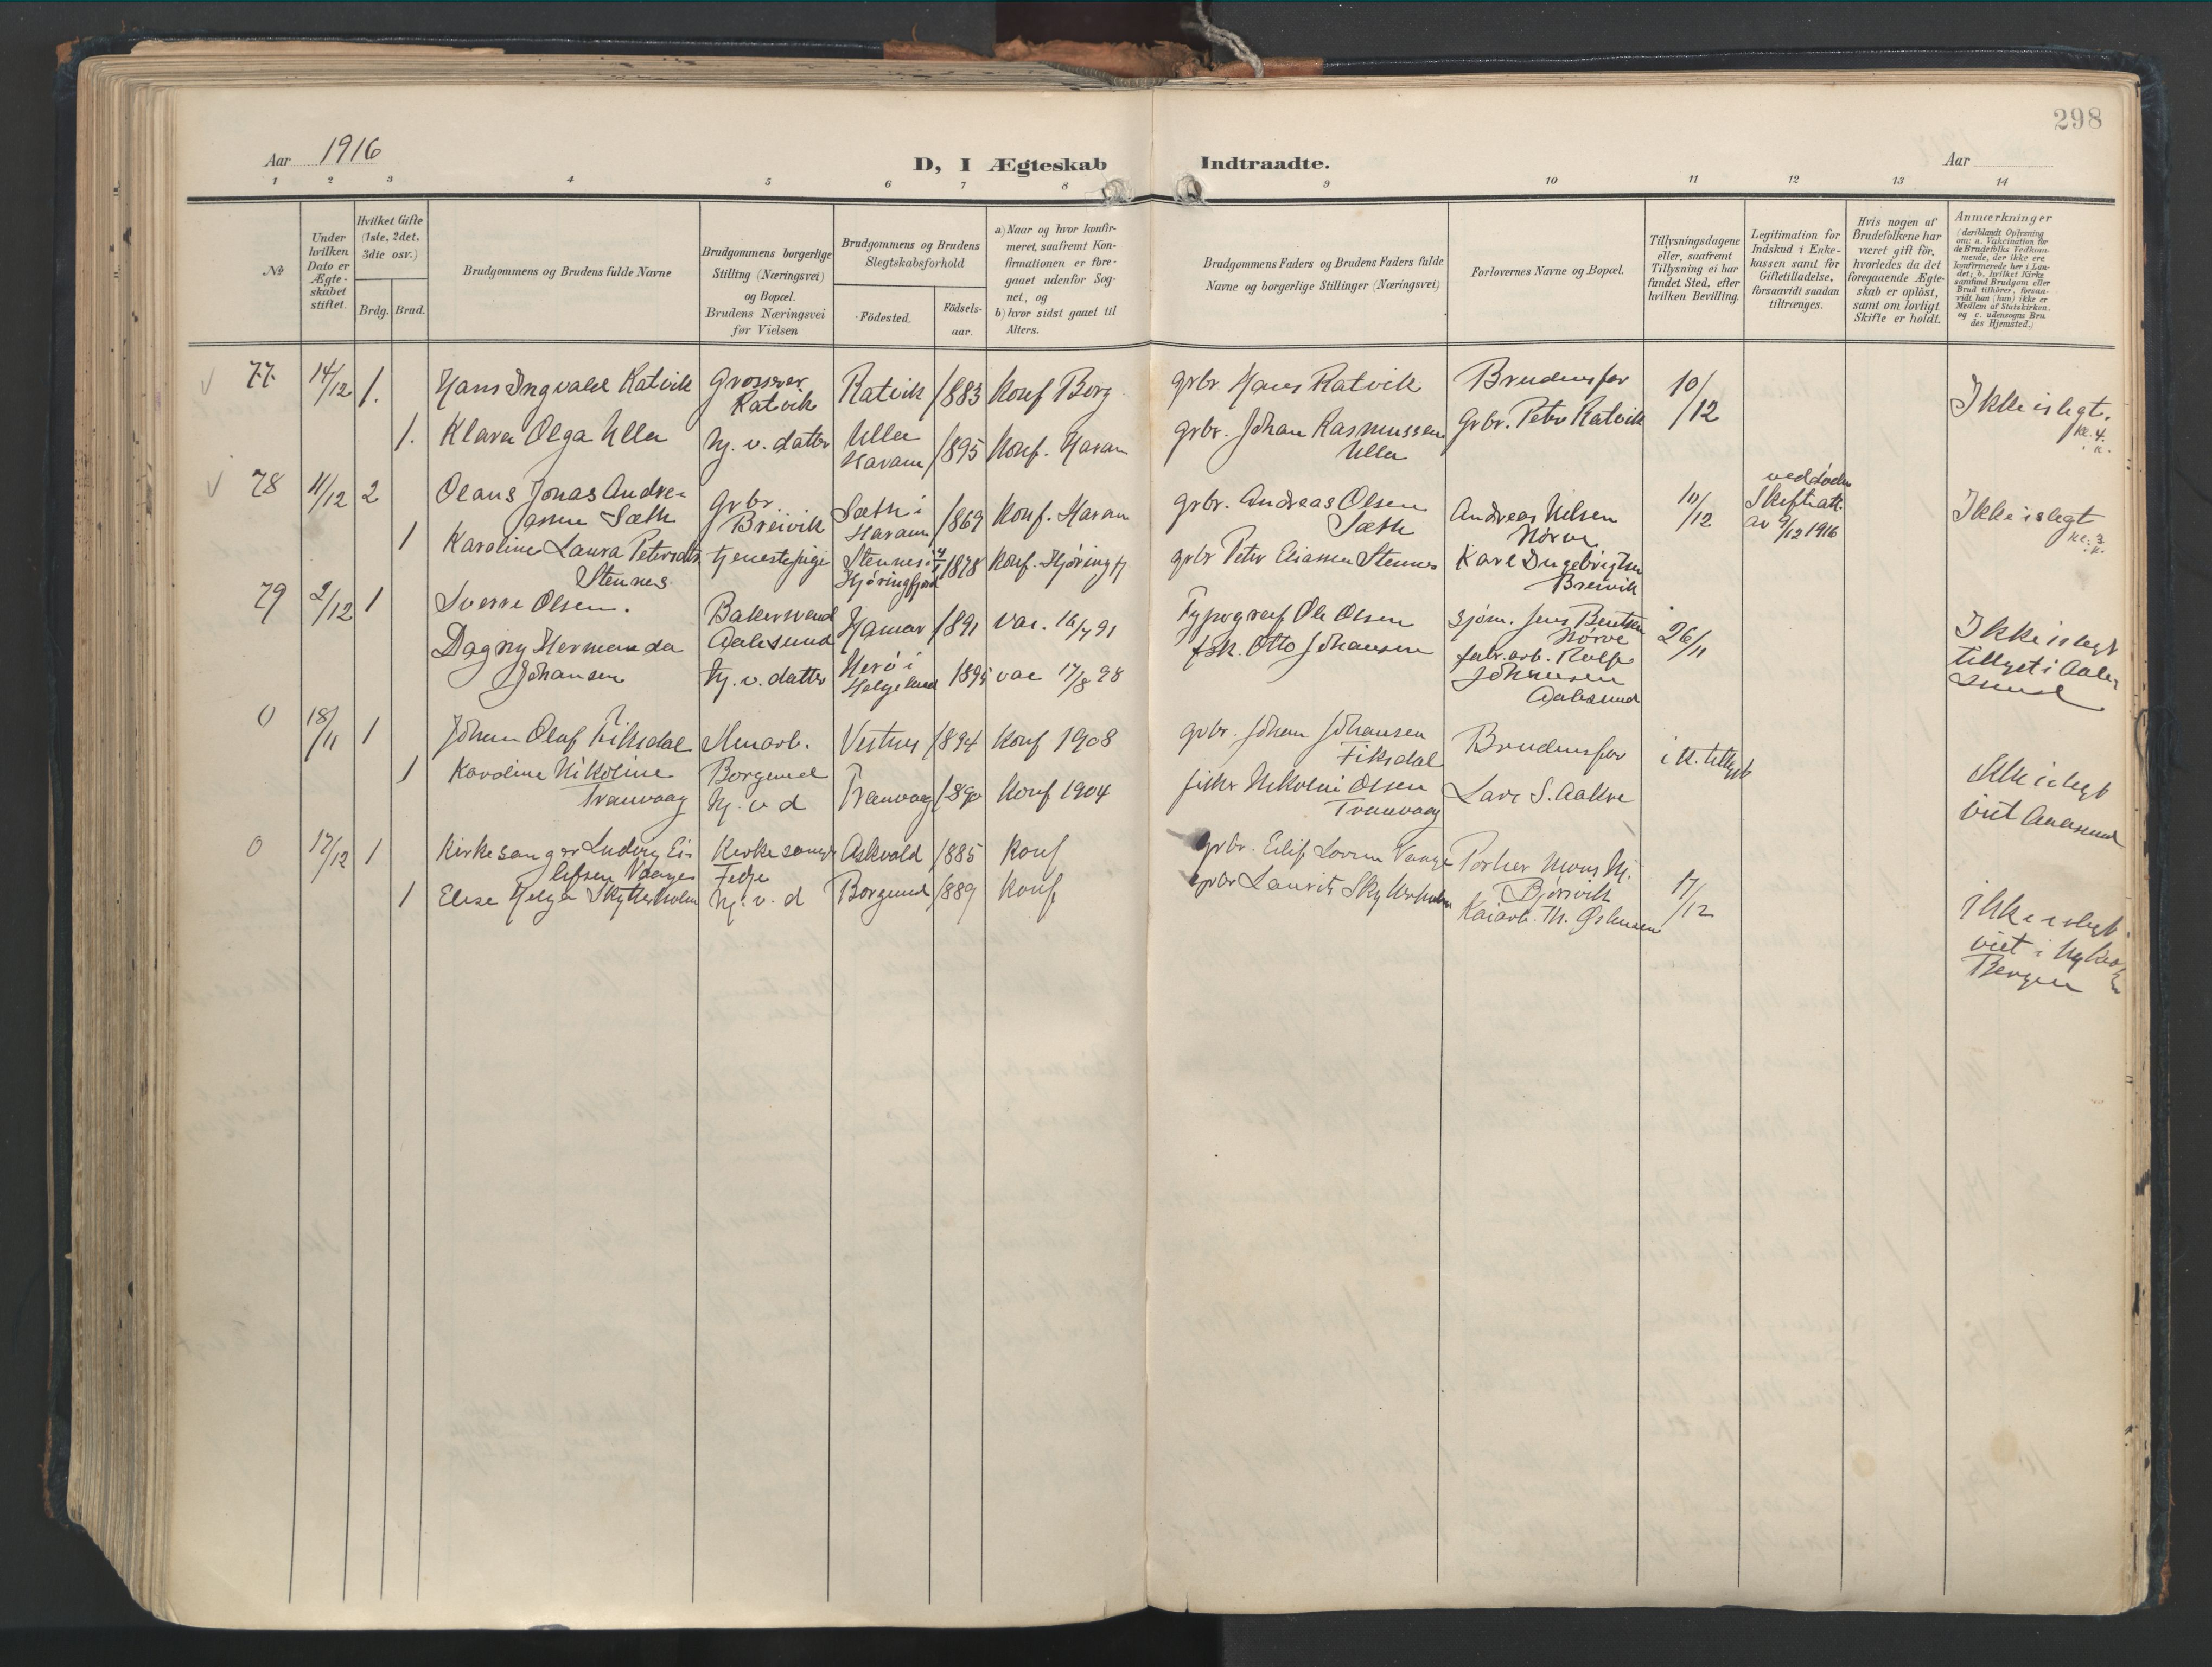 298
Aar 1916
D, I Ægteskab Indtraadte.
Aar
1 2 3 4 5 6 7 8 9 10 11 12 13 14
No
Under hvilken Dato er Ægteskabet stiftet.
Hvilket Gifte (1ste, 2det, 3die osv.)
Brdg. Brud.
Brudgommens og Brudens fulde Navne
Brudgommens borgerlige Stilling (Næringsvei) og Bopæl. Brudens Næringsvei før Vielsen
Brudgommens og Brudens Slegtskabsforhold
Födested. Födsels-aar.
a) Naar og hvor konfirmeret, saafremt Konfirmationen er foregaaet udenfor Sognet, og
b) hvor sidst gaaet til Alters.
Brudgommens Faders og Brudens Faders fulde Navne og borgerlige Stillinger (Næringsvei)
Forlovernes Navne og Bopæl.
Tillysningsdagene eller, saafremt Tillysning ei har fundet Sted, efter hvilken Bevilling.
Legitimation for Indskud i Enkekassen samt for Giftetilladelse, forsaavidt saadan tiltrænges.
Hvis nogen af Brudefolkene har været gift för, hvorledes da det foregaaende Ægteskab er oplöst, samt om lovligt Skifte er holdt.
Anmærkninger
(deriblandt Oplysning om: a. Vakcination for de Brudefolks Vedkommende, der ikke ere konfirmerede her i Landet; b. hvilket Kirkesamfund Brudgom eller Brud tilhörer, forsaavidt han (hun) ikke er Medlem af Statskirken, og c. udensogns Brudes Hjemsted.)
77 14/12 1. Hans Ingvald Ratvik Grosserer Ratvik Ratvik 1883 Konf Borg. grbr Hans Ratvik Brudens far 10/12 Ikke i slegt.
kl. 4.
1. Klara Olga Ulla hj. v. datter Ulla Haram 1895 Konf. Haram grbr. Johan Rasmussen Ulla Grbr. Petr Ratvik
78 11/12 2 Olaus Jonas Andreassen Sæth grbr. Breivik Sæth i Haram 1869 Konf. Haram grbr. Andreas Olsen Sæth Andreas Nilsen Nørve 10/12 ved døden Skifteatt. av 9/12 1916 Ikke i slegt
kl. 3
1 Karoline Laura Petersdtr Stennes tjenestepige Stennes i Hjøringfjord 1878 Konf. Hjøringfj grbr Peter Eliassen Stennes Karl Ingebrigtsen Breivik
79 2/12 1 Sverre Olsen. Bakersvend Aalesund Hamar 1891 vac. 16/7 91 Typograf Ole Olsen sjøm. Jens Bentsen Nørve 26/11 Ikke i slegt tillyst i Aalesund
Dagny Hermanda Johansen hj. v. datter Herø i Helgeland 1895 vac 17/8 98 fisk. Otto Johansen fabr. arb. Rolf Johansen Aalesund
0 18/11 1 Johan Olaf Fiksdal Murarb. Borgund Vestnes 1894 Konf 1908 grbr. Johan Johansen Fiksdal Brudens far i K. tillyst Ikke i slegt viet Aalesund
1 Karoline Nikoline Tranvaag hj. v d Tranvaag 1890 Konf 1904 fisker Nikolai Olsen Tranvaag Lars S. Aakre
0 17/12 1 Kirkesanger Ludvig Eilifsen Vaage Kirkesanger Fedje Askvold 1885 Konf grbr. Eilif Vaage Portier Mons M. Bjørsvik 17/12 ikke i slegt. viet i Nykirken Bergen
1 Elise Helga Skytterholm hj. v. d Borgund 1889 Konf grbr Laurits Skytterholm Kaiarb. Th.